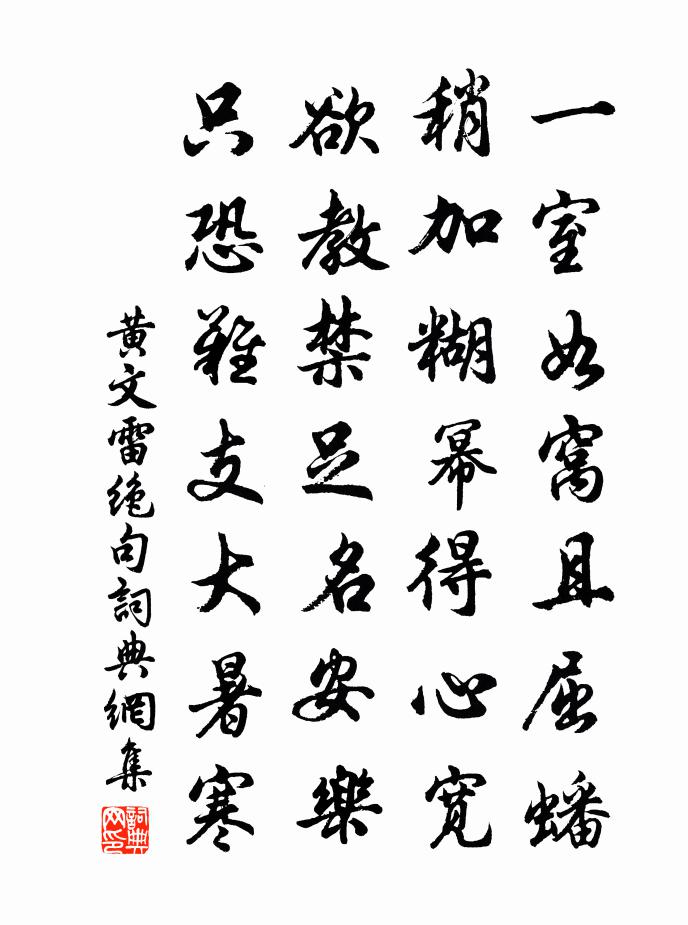 一室如窩且屈蟠
稍加糊幂得心寬
欲教禁足名安樂
只恐難支大暑寒
黃文雷絶句詞典網集
詞典网印